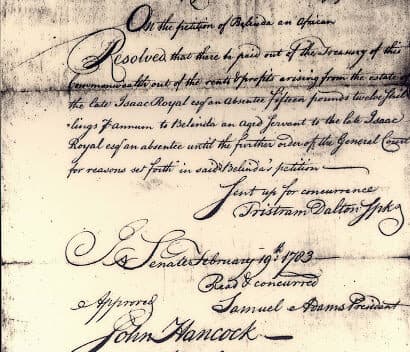 On the petition of Belinda an African
Resolved that there be paid out of the Treasury of this
Commonwealth out of the rents & profits arising from the estate of
the late Isaac Royal esqr an absentee fifteen pounds twelve shil
lings ⅌ annum to Belinda an aged servant to the late Isaac
Royal esqr an absentee until the further order of the General Court
for reasons set forth in said Belinda's petition —
Sent up for concurrence
Tristram Dalton Spkr
In Senate February 19th 1783
Read & concurred
Approved
Samuel Adams President
John Hancock —